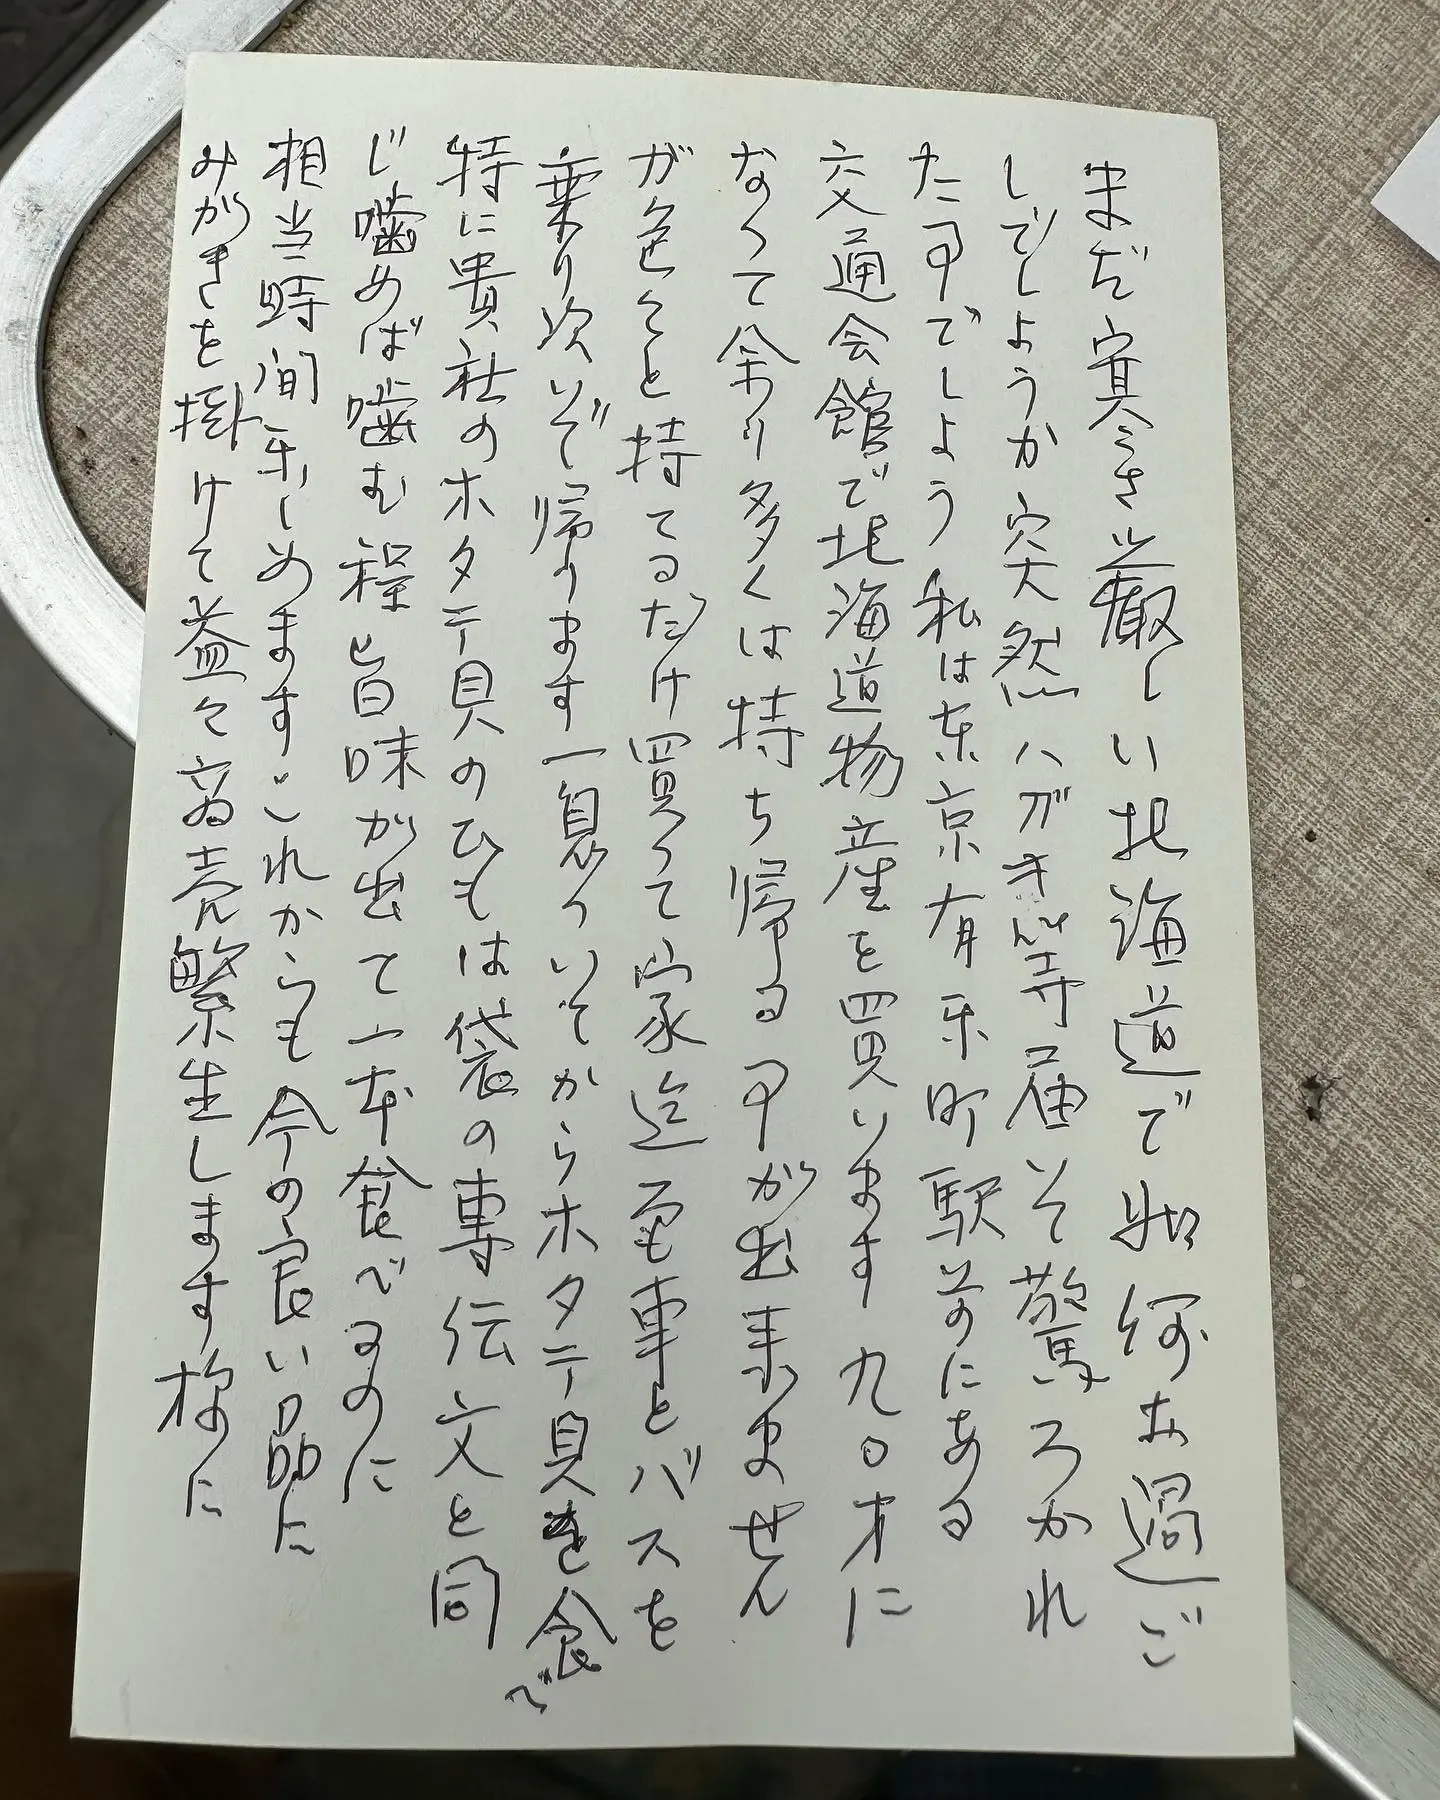 まだ寒さ厳しい北海道で如何お過ご
しでしょうか突然ハガキ等届そ驚ろかれ
た事でしょう私は東京有楽町駅前にある
交通会館で北海道物産を買います九〇才に
なって余り多くは持ち帰る事が出来ません
が色々と持てるだけ買って家迄電車とバスを
乗り次いで帰ります一息ついてからホタテ貝を食べ
特に貴社のホタテ貝のひもは袋の専伝文と同
じ噛めば噛む程旨味が出て一本食べるのに
相当時間楽しめますこれからも今の良い品に
みがきを掛けて益々商売繁生します様に